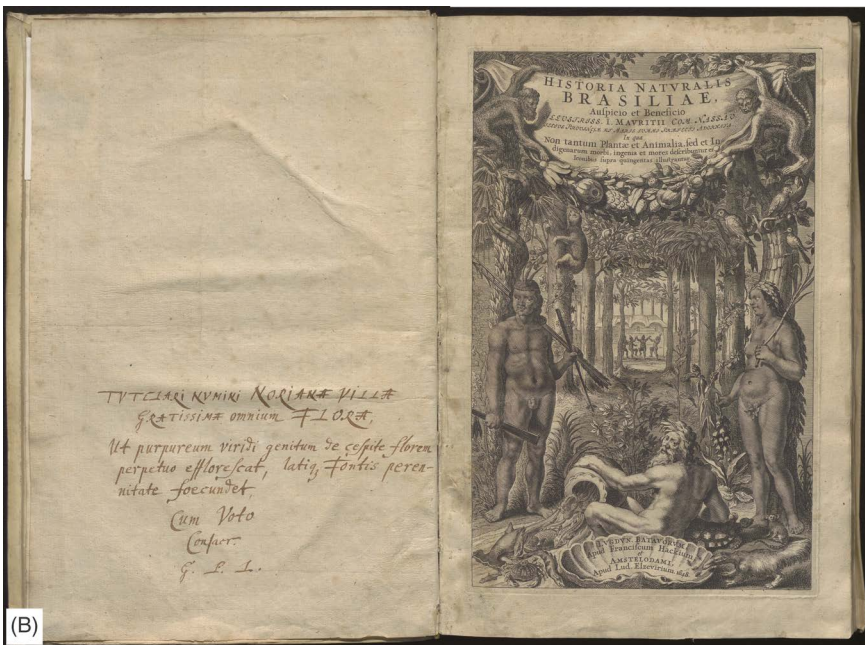 TVTELARI NVMINI NORIANÆ VILLÆ
GRATISSIMÆ omnium FLORÆ,
Ut purpureum viridi genitum de cespite florem
perpetuo efflorescat, latiq; Fontis peren-
nitate foecundet,
Cum Voto
Consacr.
G. P. L.
HISTORIA NATVRALIS
BRASILIAE,
Auspicio et Beneficio
ILLUSTRISS. I. MAVRITII COM. NASSAV
In qua
Non tantum Plantæ et Animalia, sed et In-
digenarum morbi, ingenia et mores describuntur et
Iconibus supra quingentas illustrantur.
LVGDVN. BATAVORVM,
Apud Franciscum Hackium,
et
AMSTELODAMI,
Apud Lud. Elzevirium. 1648.
(B)